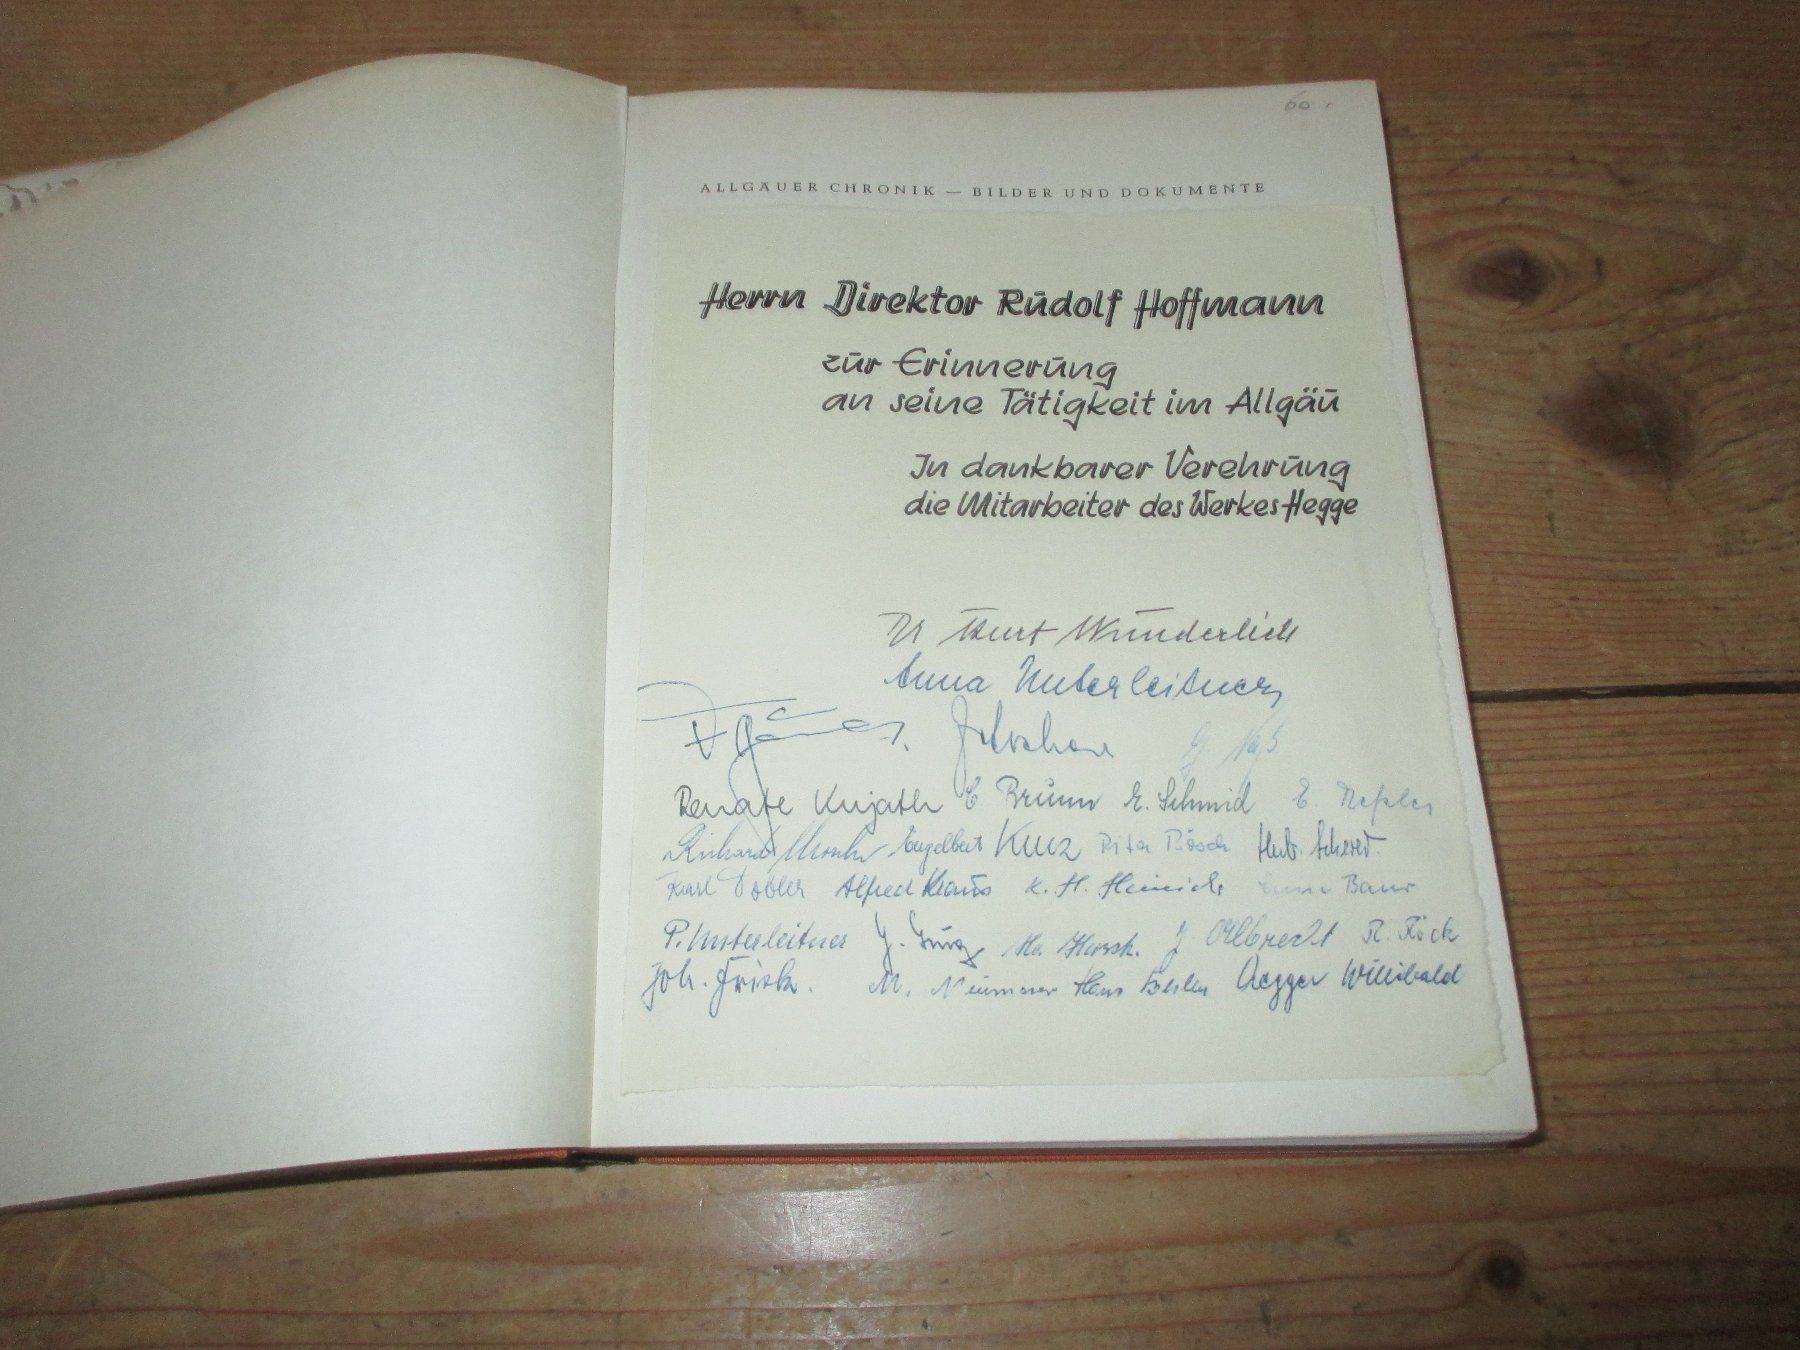 60
ALLGÄUER CHRONIK — BILDER UND DOKUMENTE
Herrn Direktor Rudolf Hoffmann
zur Erinnerung
an seine Tätigkeit im Allgäu
In dankbarer Verehrung
die Mitarbeiter des Werkes Hegge
Kurt Wunderlich
Anna Unterleitner
Renate Kujath E Brunn E. Schmid E.
Richard Engelbert Kunz Rita Rösch Hub.
Karl Dobler Alfred Kraus K. H. Heinrich Baur
P. Unterleitner G. J Albrecht R. Röck
Joh. Frisch. M. Neumaier Hans Aegger Willibald